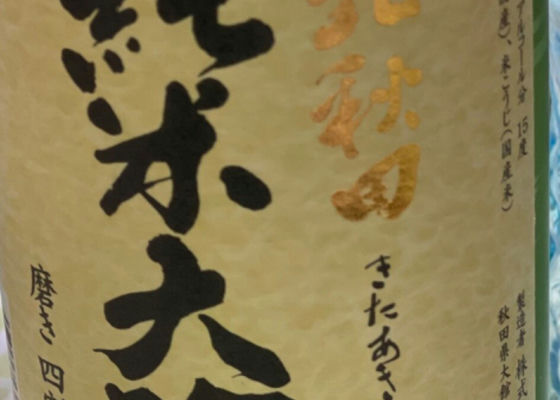 アルコール分 15度
国産)、米こうじ(国産米)
製造者 株式
秋田県大館
北秋田
きたあき
純米大吟
磨き 四